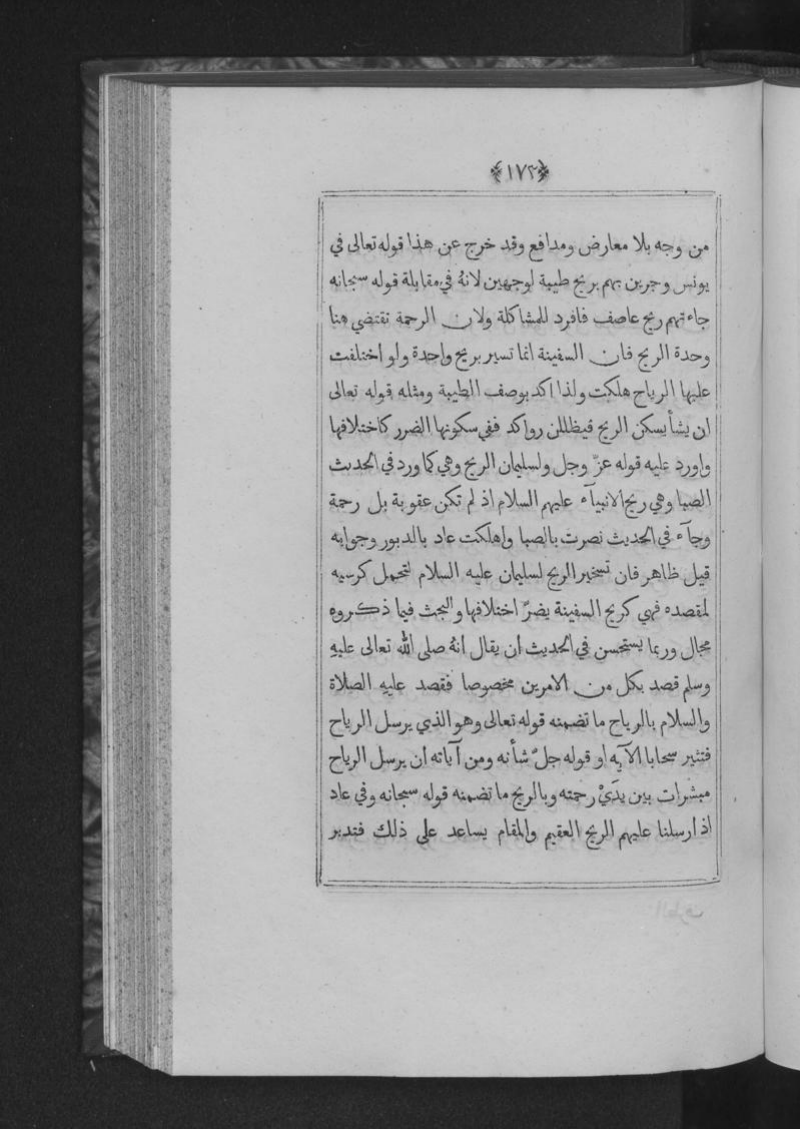 ﴿١٧٢﴾
من وجه بلا معارض ومدافع وقد خرج عن هذا قوله تعالى في
يونس وجرين بهم بريح طيبة لوجهين لانهُ في مقابلة قوله سبحانه
جاءتهم ريح عاصف فافرد للمشاكلة ولان الرحمة تقتضي هنا
وحدة الريح فان السفينة انما تسير بريح واحدة ولو اختلفت
عليها الرياح هلكت ولذا اكد بوصف الطيبة ومثله قوله تعالى
ان يشأ يسكن الريح فيظللن رواكد ففي سكونها الضرر كاختلافها
واورد عليه قوله عزّ وجل ولسليمان الريح وهي كما ورد في الحديث
الصبا وهي ريح الانبيآء عليهم السلام اذ لم تكن عقوبة بل رحمة
وجآء في الحديث نصرت بالصبا واهلكت عاد بالدبور وجوابه
قيل ظاهر فان تسخير الريح لسليمان عليه السلام لتحمل كرسيه
لمقصده فهي كريح السفينة يضرّ اختلافها والبحث فيما ذكروه
مجال وربما يستحسن في الحديث ان يقال انهُ صلى الله تعالى عليهِ
وسلم قصد بكل من الامرين مخصوصا فقصد عليهِ الصلاة
والسلام بالرياح ما تضمنه قوله تعالى وهو الذي يرسل الرياح
فتثير سحابا الآيه او قوله جلّ شأنه ومن آياته ان يرسل الرياح
مبشرات بين يدَيْ رحمته وبالريح ما تضمنه قوله سبحانه وفي عاد
اذ ارسلنا عليهم الريح العقيم والمقام يساعد على ذلك فتدبر